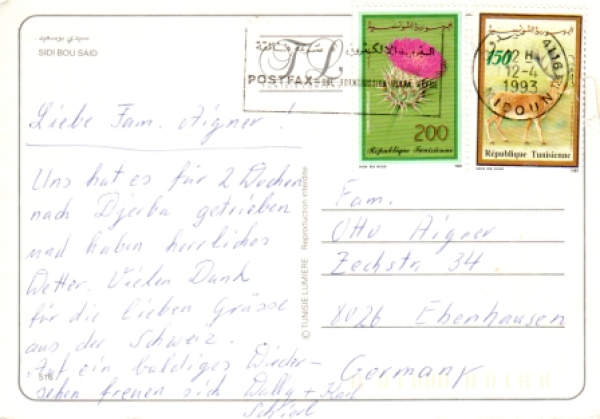 سيدي بوسعيد
SIDI BOU SAID
البريد الإلكتروني
POSTFAX
الجمهورية التونسية
200
République Tunisienne
الجمهورية التونسية
150
République Tunisienne
4116
12-4
1993
MIDOUN
Liebe Fam. Aigner!
Uns hat es für 2 Wochen
nach Djerba getrieben
und haben herrliches
Wetter. Vielen Dank
für die lieben Grüsse
aus der Schweiz.
Auf ein baldiges Wieder-
sehen freuen sich Wally + Karl
516
© TUNISIE LUMIERE Reproduction interdite
Fam.
Otto Aigner
Zechstr. 34
8026 Ebenhausen
Germany